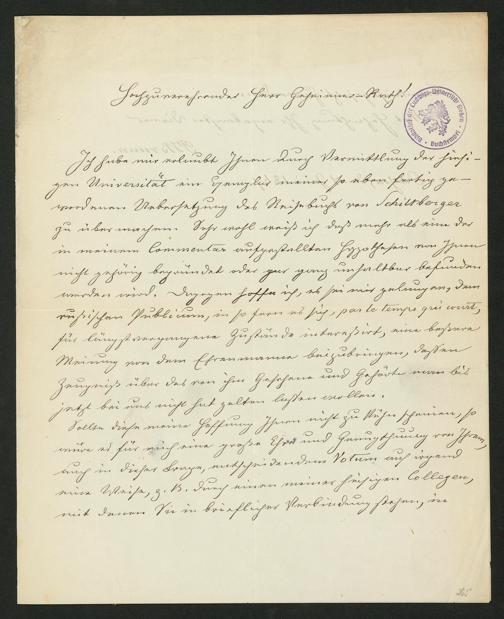 Hochzuverehrender Herr Geheimer-Rath!
Ich habe mir erlaubt Ihnen durch Vermittlung der hiesi-
gen Universität ein Exemplar meiner so eben fertig ge-
wordenen Uebersetzung des Reisebuchs von Schiltberger
zu übermachen. Sehr wohl weiß ich daß mehr als eine der
in meinem Commentar aufgestellten Hypothesen von Ihnen
nicht gehörig begründet oder gar ganz unhaltbar befunden
werden wird. Dagegen hoffe ich, es sei mir gelungen, dem
russischen Publicum, in so fern es sich, par le temps qui court,
für längstvergangene Zustände interessirt, eine bessere
Meinung von dem Ehrenmanne beizubringen, dessen
Zeugniß über das von ihm Gesehene und Gehörte man bis
jetzt bei uns nicht hat gelten lassen wollen.
Sollte diese meine Hoffnung Ihnen nicht zu kühn scheinen, so
wäre es für mich eine große Ehre und Genugthuung von Ihrem,
auch in dieser Frage, entscheidendem Votum auf irgend
eine Weise, z. B. durch einen meiner hiesigen Collegen,
mit denen Sie in brieflicher Verbindung stehen, in